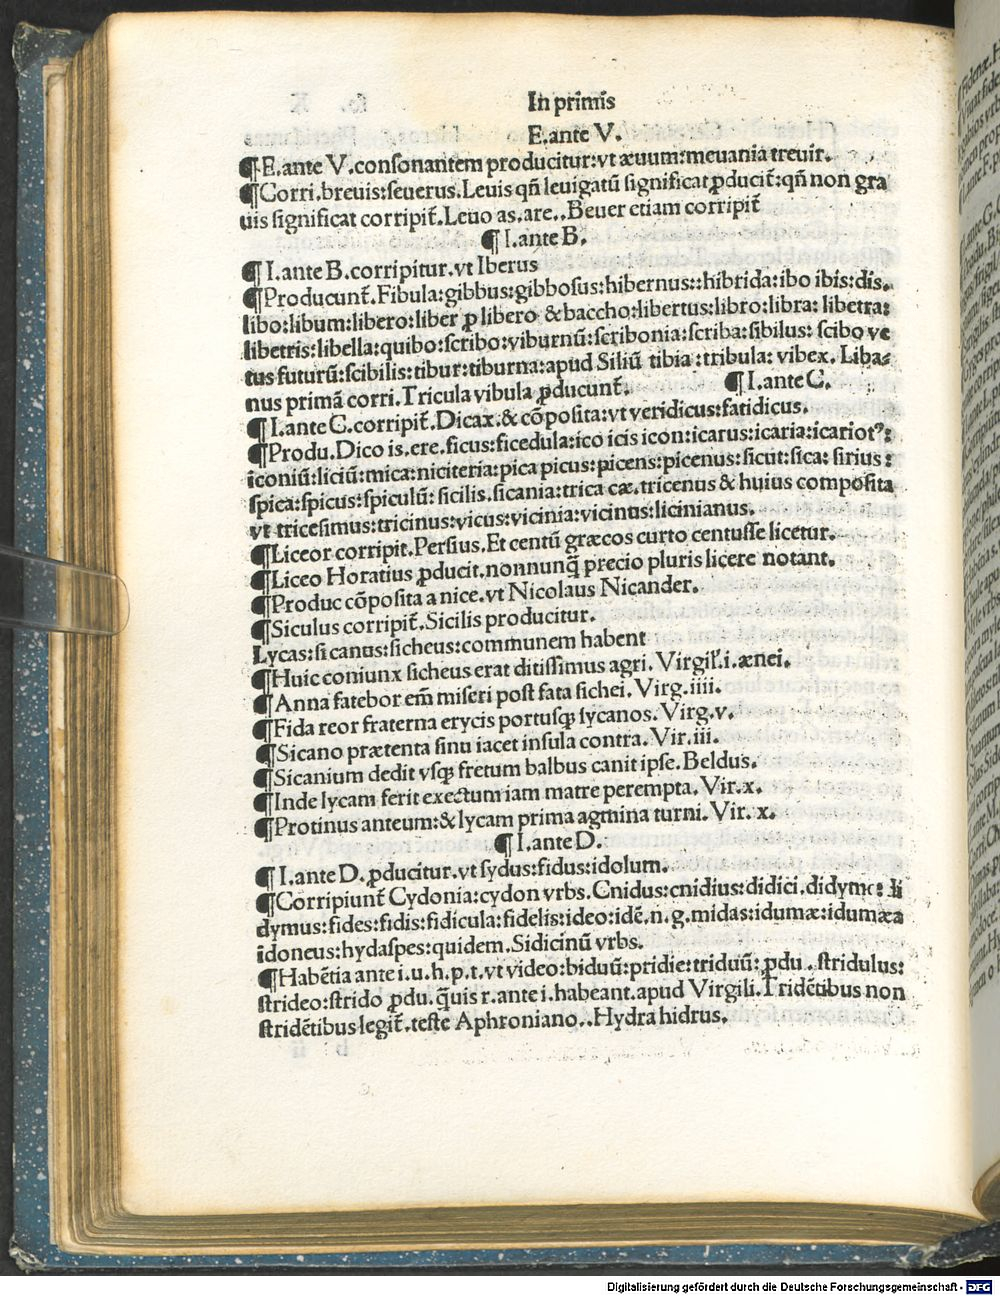 In primis
E.ante V.
¶E.ante V.conſonantem producitur:vt æuum:meuania treuir.
¶Corri.breuis:ſeuerus.Leuis qñ leuigatũ ſignificat ꝓducit̃:qñ non gra
uis ſignificat corripit̃.Leuo as.are..Beuer etiam corripit̃
¶ I.ante B.
¶ I.ante B.corripitur.vt Iberus
¶Producunt̃.Fibula:gibbus:gibboſus:hibernus::hibrida:ibo ibis:dis.
libo:libum:libero:liber ꝓ libero & baccho:libertus:libro:libra: libetra:
libetris:libella:quibo:ſcribo:viburnũ:ſcribonia:ſcriba:ſibilus: ſcibo ve
tus futurũ:ſcibilis:tibur:tiburna:apud Siliũ tibia :tribula: vibex. Liba⸗
nus primã corri.Tricula vibula ꝓducunt̃. ¶ I.ante C.
¶ I.ante C.corripit̃.Dicax.& cõpoſita:vt veridicus:fatidicus.
¶Produ.Dico is.ere.ficus:ficedula:ico icis icon:icarus:icaria:icariotꝰ:
iconiũ:liciũ:mica:niciteria:pica picus:picens:picenus:ſicut:ſica: ſirius :
ſpica:ſpicus:ſpiculũ: ſicilis.ſicania:trica cæ.tricenus & huius compoſita
vt triceſimus:tricinus:vicus:vicinia:vicinus:licinianus.
¶Liceor corripit.Perſius.Et centũ græcos curto centuſſe licetur.
¶Liceo Horatius ꝓducit.nonnunq̃ precio pluris licere notant.
¶Produc cõpoſita a nice.vt Nicolaus Nicander.
¶Siculus corripit̃.Sicilis producitur.
Lycas:ſicanus:ſicheus:communem habent
¶Huic coniunx ſicheus erat ditiſſimus agri. Virgil̕.i.ænei.
¶Anna fatebor em̃ miſeri poſt fata ſichei. Virg.iiii.
¶Fida reor fraterna erycis portuſqꝫ ſycanos. Virg.v.
¶Sicano prætenta ſinu iacet inſula contra. Vir.iii.
¶Sicanium dedit vſqꝫ fretum balbus canit ipſe. Beldus.
¶Inde lycam ferit exectum iam matre perempta. Vir.x.
¶Protinus anteum:& lycam prima agmina turni. Vir. x.
¶ I.ante D.
¶ I.ante D. ꝓducitur.vt ſydus:fidus:idolum.
¶Corripiunt̃ Cydonia:cydon vrbs. Cnidus:cnidius:didici.didymo: li
dymus:fides:fidis:fidicula:fidelis:ideo:idẽ.n.g.midas:idumæ:idumæa
idoneus:hydaſpes:quidem.Sidicinũ vrbs.
¶Habẽtia ante i.u.h.p.t.vt video:biduũ:pridie:triduũ: ꝓdu . ſtridulus:
ſtrideo:ſtrido ꝓdu.q̃uis r.ante i.habeant.apud Virgili.Tridẽtibus non
ſtridẽtibus legit̃.teſte Aphroniano..Hydra hidrus.
Digitalisierung gefördert durch die Deutsche Forschungsgemeinschaft - DFG